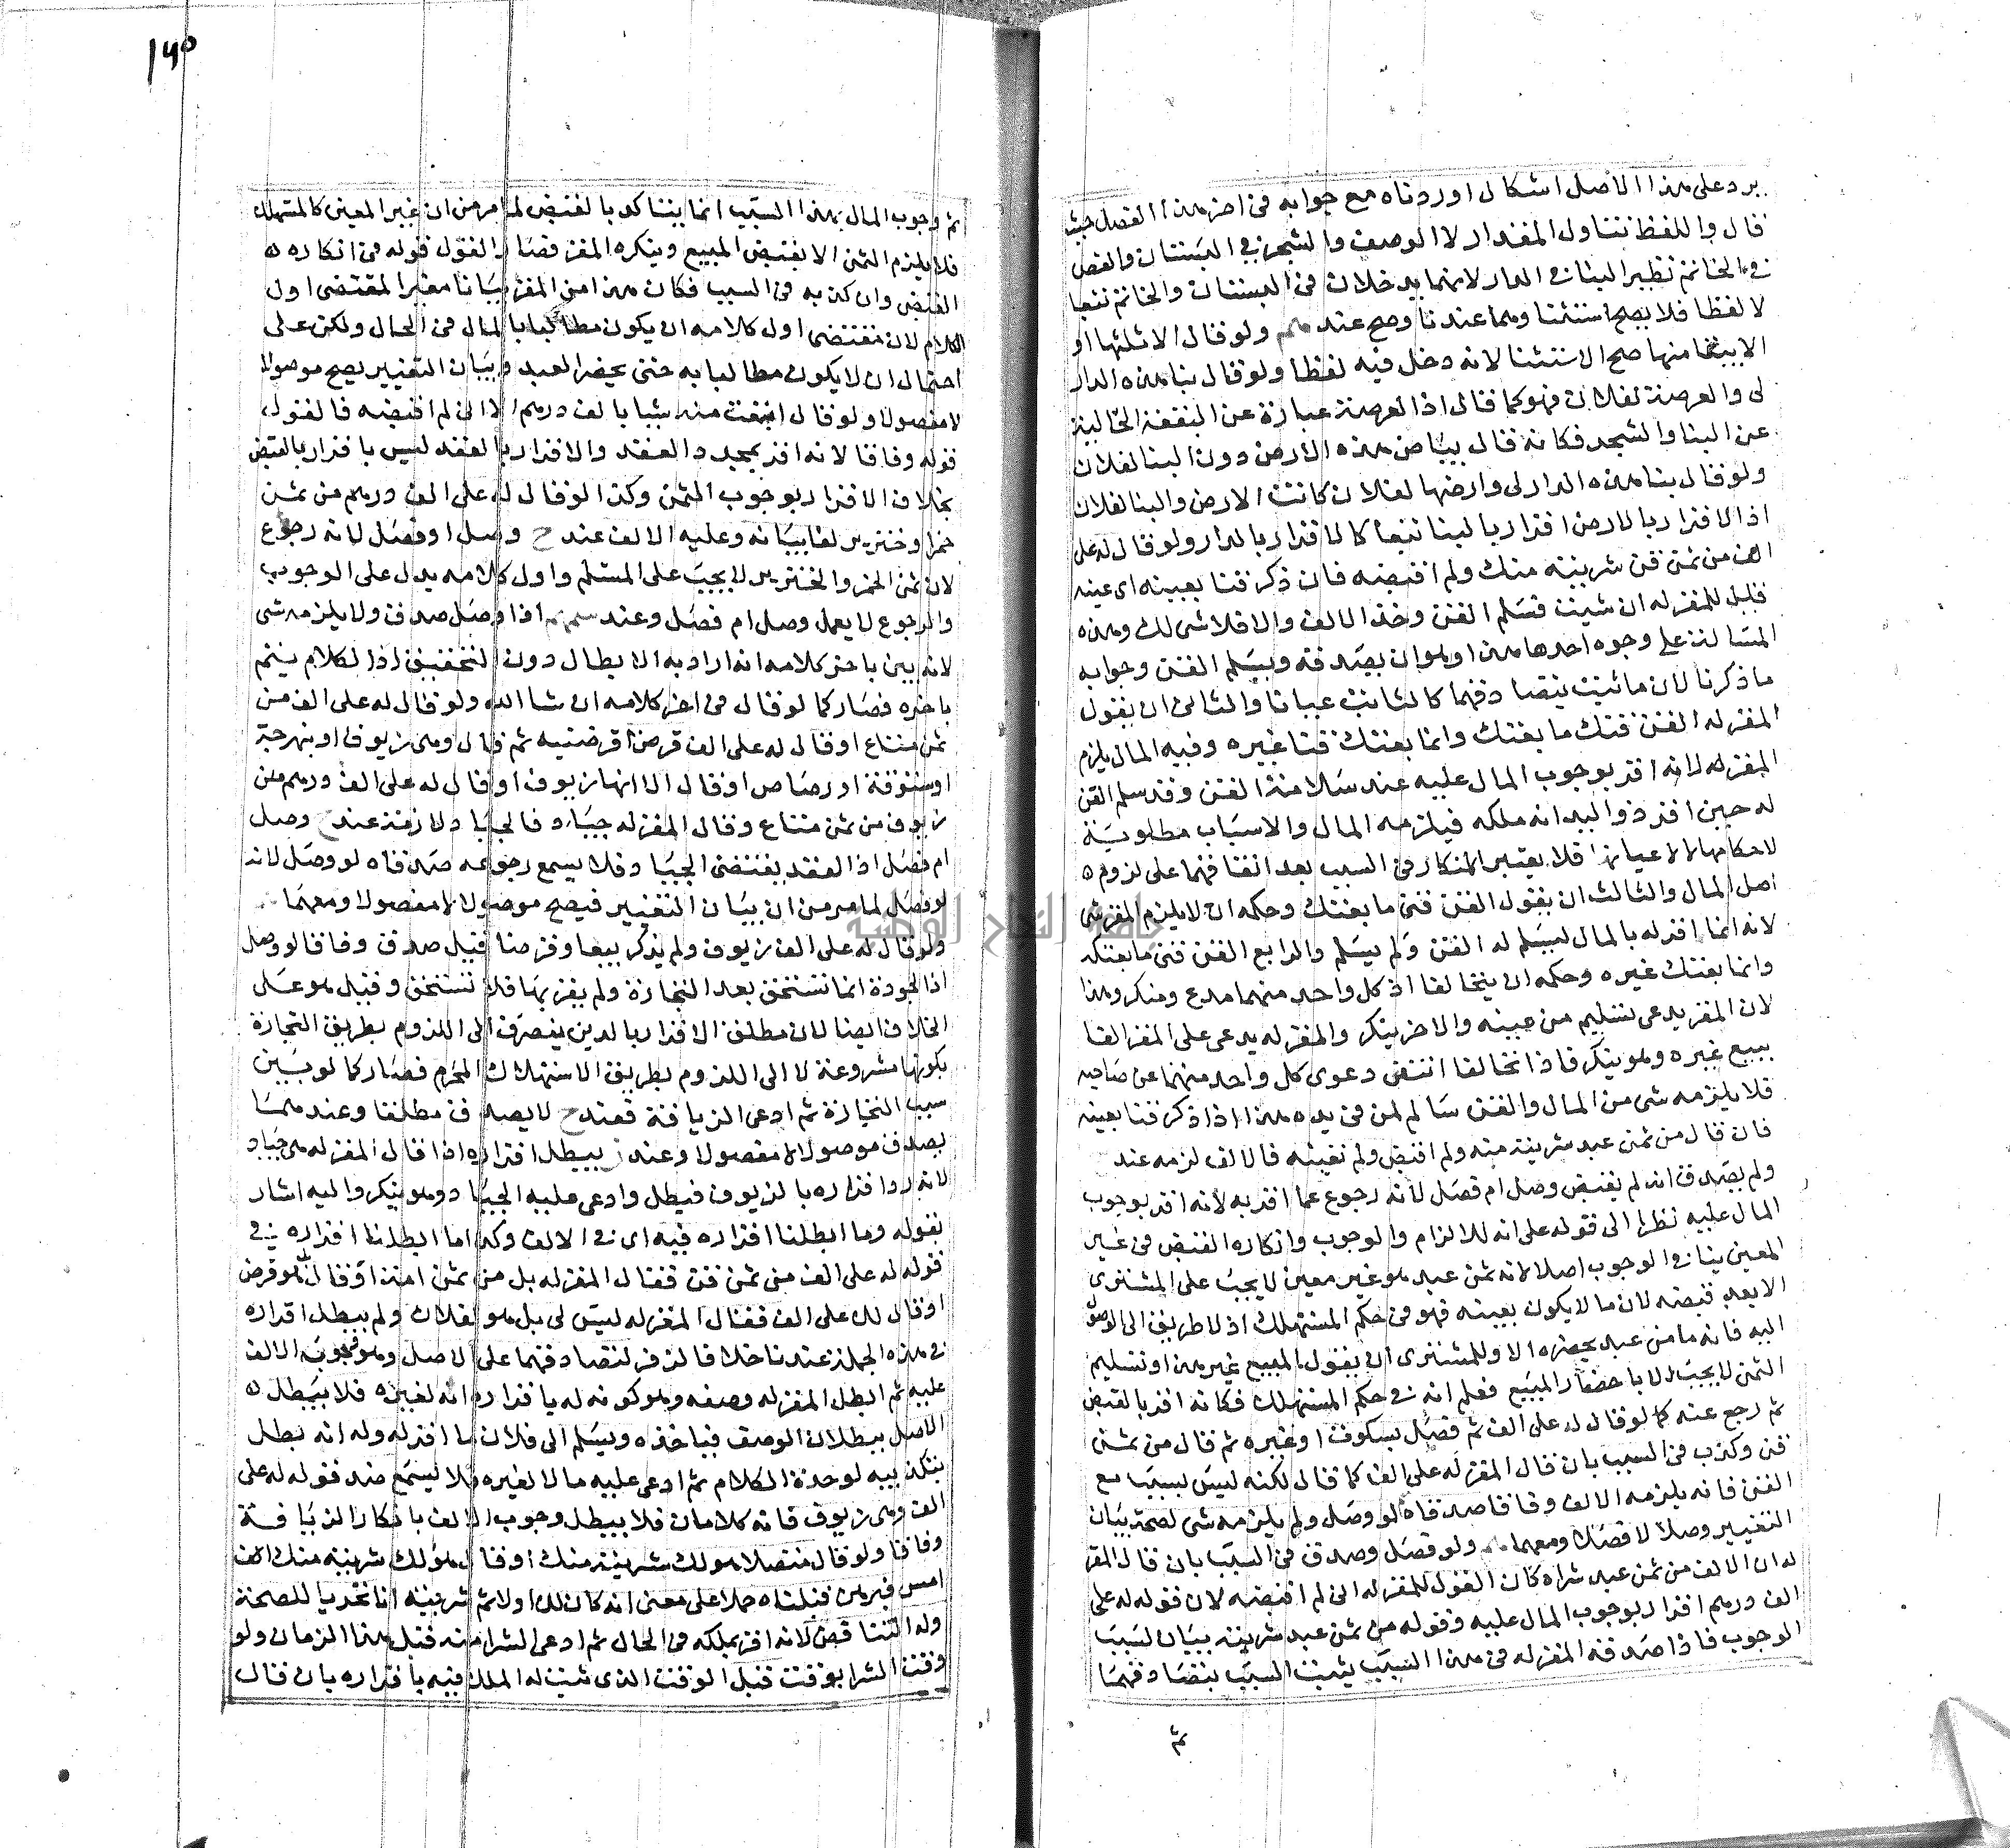 يرد على هذا الاصل اشكال اوردناه مع جوابه في اخر هذا الفصل حيث
قال واللفظ تتناول المقدار لا الوصف والشجر في البستان والفص
في الخاتم نظير البناء في الدار لانهما يدخلان في البستان والخاتم تبعا
لا لفظا فلا يصح استثناوهما عندنا وصح عند ولو قال الا ثلثها او
الا بيتا منها صح الاستثنا لانه دخل فيه لفظا ولو قال بنا هذه الدار
لي والعرصة لفلان فهو كما قال اذ العرصة عبارة عن البقعة الخالية
عن البنا والشجر فكانه قال بياض هذه الارض دون البنا لفلان
ولو قال بنا هذه الدار لي وارضها لفلان كانت الارض والبنا لفلان
اذ الاقرار بالارض اقرار بالبنا تبعا كالاقرار بالدار ولو قال له على
الف من ثمن قن شريته منك ولم اقبضه فان ذكر قنا بعينه اى عينه
قليل للمقر له ان شيت فسلم القن وخذ الالف والا فلا شي لك وهذه
المسالة على وجوه احدها هذا وهو ان يصدقه ويسلم القن وجوابه
ما ذكرنا لان ما ثبت بتصادقهما كالثابت عيانا والثاني ان يقول
المقر له القن قنك ما بعتك وانما بعتك قنا غيره وفيه المال يلزم
المقر له لانه اقر بوجوب المال عليه عند سلامة القن وقد سلم القن
له حين اقر ذو اليد انه ملكه فيلزمه المال والاسباب مطلوبة
لاحكامها لا لاعيانها فلا يعتبر المنكار في السبب بعد اتفاقهما على لزوم
اصل المال والثالث ان يقول القن قني ما بعتك وحكمه ان لا يلزم المقر شي
لانه انما اقر له بالمال ليسلم له القن ولم يسلم والرابع القن قني ما بعتكه
وانما بعتك غيره وحكمه ان يتحالفا اذ كل واحد منهما مدع ومنكر وهذا
لان المقر يدعى تسليم من عينه والاخر ينكر والمقر له يدعى على المقر الفا
ببيع غيره وهو ينكر فاذا تحالفا انتفى دعوى كل واحد منهما عن صاحبه
فلا يلزمه شي من المال والقن سالم لمن في يده هذا اذا ذكر قنا بعينه
فان قال من ثمن عبد شريته منه ولم اقبض ولم تعينه فالالف لزمه عند
ولم يصدق انه لم يقبض وصل ام فصل لانه رجوع عما اقر به لانه اقر بوجوب
المال عليه نظرا الى قوله على انه للالزام والوجوب وانكاره القبض في غير
المعين ينافي الوجوب اصلا لانه ثمن عبد هو غير معين لا يجب على المشترى
الا بعد قبضه لان ما لا يكون بعينه فهو في حكم المستهلك اذ لا طريق الى الوصول
اليه فانه ما من عبد يحضره الا وللمشترى ان يقول المبيع غير هذا وتسليم
الثمن لا يجب الا باحضار المبيع فعلم انه في حكم المستهلك فكانه اقر بالقبض
ثم رجع عنه كما لو قال له على الف ثم فصل بسكوت او غيره ثم قال من ثمن
قن وكذب في السبب بان قال المقر له على الف كما قال لكنه ليس بسبب بيع
القن فانه يلزمه الالف وفاقا صدقاه لو وصل ولم يلزمه شي لصحة بيان
التغيير وصلا لا فصلا ومعهما ولو فصل وصدق في السبب بان قال المقر
له ان الالف من ثمن عبد شراه كان القول للمقر له اني لم اقبضه لان قوله له على
الف درهم اقرار بوجوب المال عليه وقوله من ثمن عبد شريته بيان لسبب
الوجوب فاذا صدقه المقر له في هذا السبب يثبت السبب بتصادقهما
ثم
١٦٥
ثم وجوب المال بهذا السبب انما يتاكد بالقبض لما مر من ان غير المعين كالمستهلك
فلا يلزم الثمن الا بقبض المبيع وينكره المقر فصار القول قوله في انكاره
القبض وان كذبه في السبب فكان هذا من المقر بيانا مغيرا لمقتضى اول
الكلام لان مقتضى اول كلامه ان يكون مطالبا بالمال في الحال ولكن على
احتمال ان لا يكون مطالبا به حتى يحضر العبد وبيان التغيير يصح موصولا
لا مفصولا ولو قال ابتعت منه شيا بالف درهم الا اني لم اقبضه فالقول
قوله وفاقا لانه اقر بمجرد العقد والاقرار بالعقد ليس باقرار بالقبض
بخلاف الاقرار بوجوب الثمن وكذا لو قال له على الف درهم من ثمن
خمر او خنزير لغا بيانه وعليه الالف عند ح وصل او فصل لانه رجوع
لان ثمن الخمر والخنزير لا يجب على المسلم واول كلامه يدل على الوجوب
والرجوع لا يعمل وصل ام فصل وعند سم اذا وصل صدق ولا يلزمه شي
لانه بين باخر كلامه انه اراد به الابطال دون التحقيق اذ الكلام يتم
باخره فصار كما لو قال في اخر كلامه ان شا الله ولو قال له على الف من
ثمن متاع او قال له على الف قرض اقرضنيه ثم قال وهى زيوف او نبهرجة
او ستوقة او رصاص او قال الا انها زيوف او قال له على الف درهم من
زيوف من ثمن متاع وقال المقر له جياد فالجياد لازمة عند ح وصل
ام فصل اذ العقد يقتضى الجياد فلا يسمع رجوعه صدقاه لو وصل لانه
لو فصل لما مر من ان بيان التغيير فيصح موصولا لا مفصولا ومعهما
ولو قال له على الف زيوف ولم يذكر بيعا وقرضا قيل صدق وفاقا لو وصل
اذ الجودة انما تستحق بعد التجارة ولم يقر بها فلا تستحق وقيل هو على
الخلاف ايضا لان مطلق الاقرار بالدين ينصرف الى اللزوم بطريق التجارة
بكونها مشروعة لا الى اللزوم بطريق الاستهلاك المحرم فصار كما لو بين
سبب التجارة ثم ادعى الزيافة فعند ح لا يصدق مطلقا وعندهما
يصدق موصولا لا مفصولا وعند ز يبطل اقراره اذا قال المقر له هى جياد
لانه رد اقراره بالزيوف فيطل وادعى عليه الجياد وهو ينكر واليه اشار
بقوله وما ابطلنا اقراره فيه اى في الالف وكذا ما ابطلنا اقراره في
قوله له على الف من ثمن قن فقال المقر له بل من ثمن امة او قال هو قرض
او قال لك على الف فقال المقر له ليس لي بل هو لفلان ولم يبطل اقراره
في هذه الجملة عندنا خلافا لزفر لتصادقهما على الاصل وهو وجوب الالف
عليه ثم ابطل المقر له وصفه وهو كونه له باقراره انه لغيره فلا يبطل
الاصل ببطلان الوصف فياخذه ويسلم الى فلان ما اقر له وله انه بطل
بتكذيبه لوحدة الكلام ثم ادعى عليه مالا لغيره فلا يسمع ضد قوله له على
الف وهى زيوف فانه كلامان فلا يبطل وجوب الالف بانكار الزيافة
وفاقا ولو قال متصلا هو لك شريته منك او قال هو لك شريته منك الف
امس فبرهن قبلناه حملا على معنى انه كان لك اولا ثم شريته انا تحريا للصحة
وله التناقض لانه اقر بملكه في الحال ثم ادعى الشرا منه قبل هذا الزمان ولو
وقت الشرا بوقت قبل الوقت الذى ثبت له الملك فيه باقراره بان قال
جامعة النجاح الوطنية